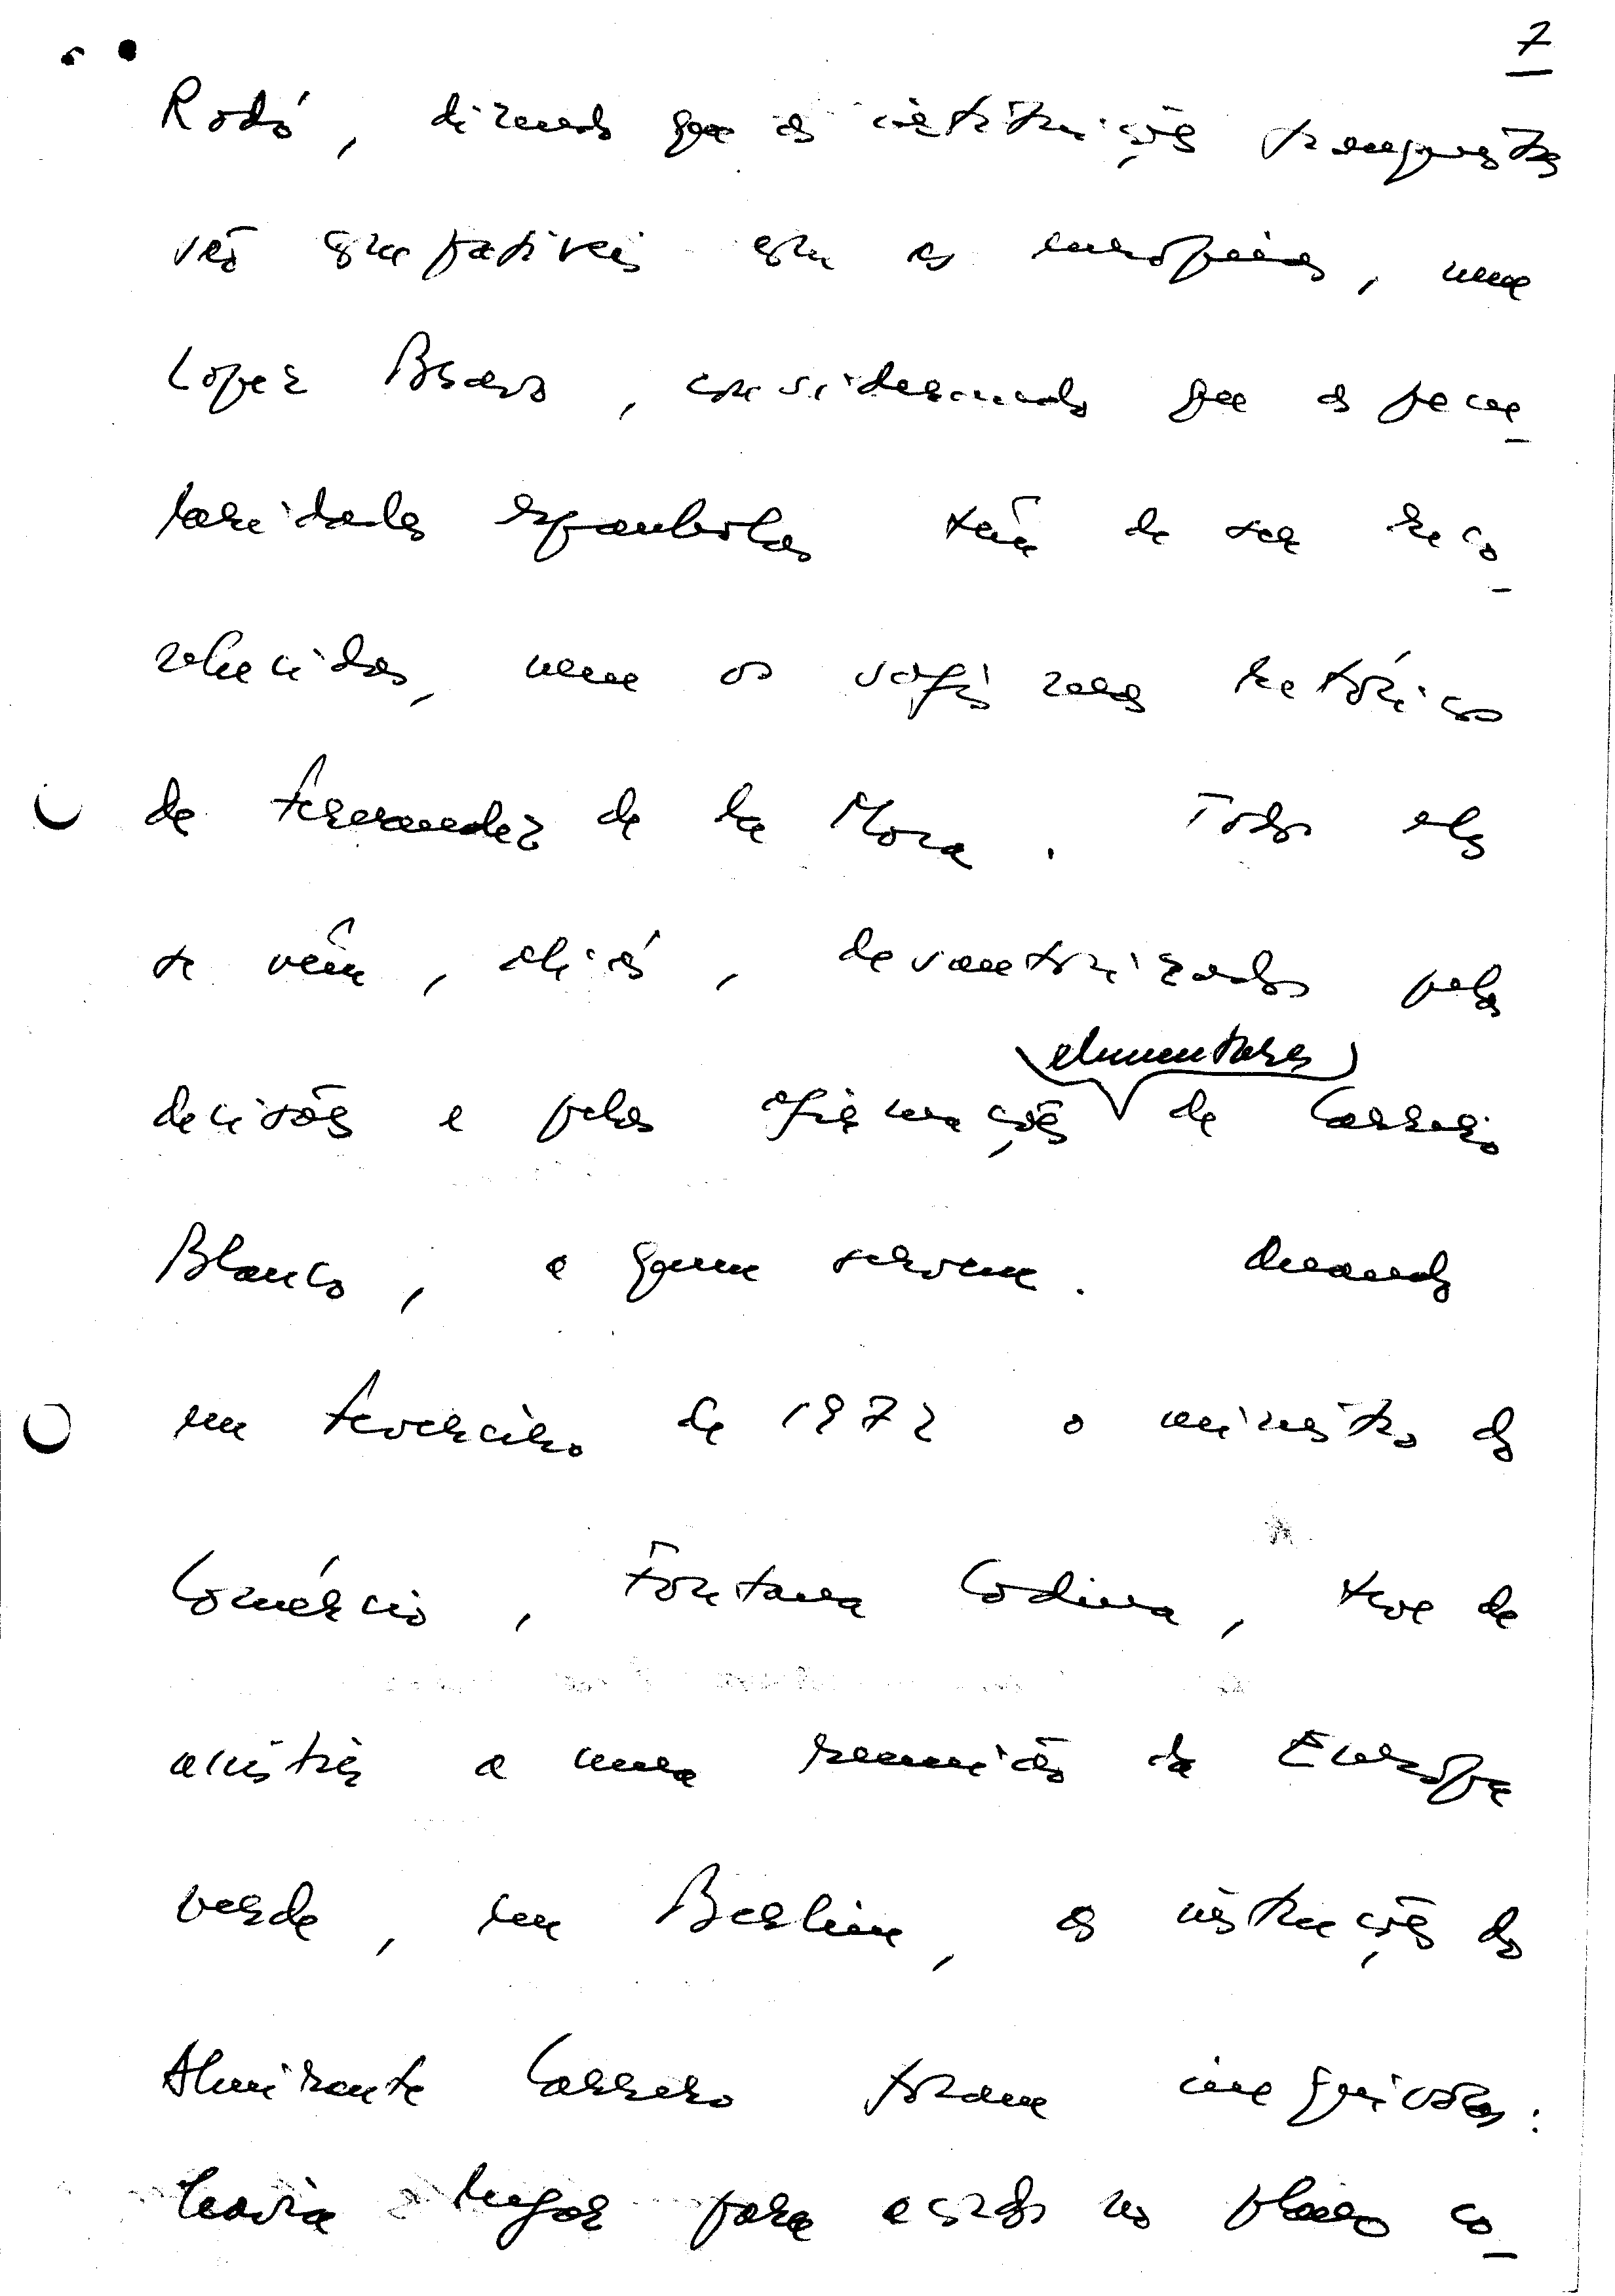 7
Rodó, dizendo que as instituições franquistas
são compatíveis com as europeias, nem
Lopez Bravo, considerando que as pecu_
liaridades espanholas têm de ser reco_
nhecidas, nem os sofismas retóricos
de Fernandez de la Mora. Todos eles
se vêm, aliás, desautorizados pelas
elementares
decisões e pelas afirmações de Carrero
Blanco, a quem servem. Quando
em Fevereiro de 1972 o ministro do
Comércio, Fontana Codina, teve de
assistir a uma reunião da Europa
verde, em Berlim, as instruções do
Almirante Carrero foram inequívocas:
havia lugar para acordos no plano co_